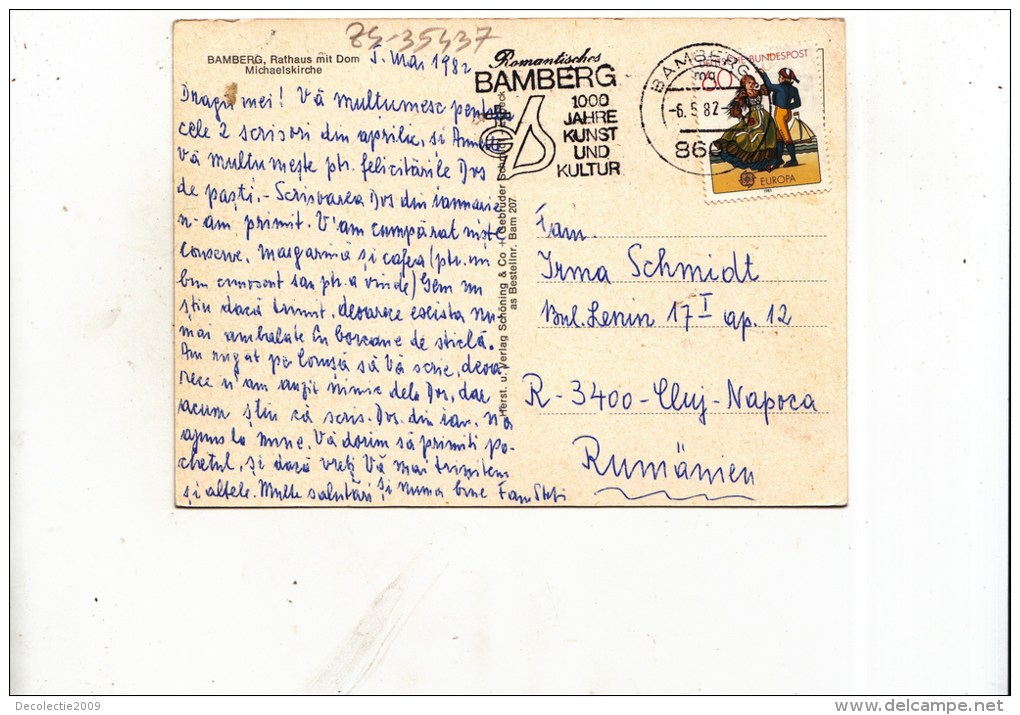 ZS-35437
BAMBERG, Rathaus mit Dom
Michaelskirche
5. Mai 1982
Dragii mei! Vă mulțumesc pentru
cele 2 scrisori din aprilie, și
Vă mulțumește ptr. felicitările Dvs
de paști. - Scrisoarea Dvs din ianuarie
n-am primit. V'am cumpărat niște
conserve, margarină și cafea (ptr. un
bun cunoscut sau ptr. a vinde) Gem nu
știu dacă trimit, deoarece există nu-
mai ambalate în borcane de sticlă.
Am rugat pe să Vă scrie, deoa-
rece n'am auzit nimic dela Dvs, dar
acum știu că scris. Dvs. din ian. n'a
ajuns la mine. Vă dorim să primiți pa-
chetul, și dacă vreți Vă mai trimitem
și altele. Multe salutări și numai bine Fam
Herst. u. Verlag Schöning & Co + Gebrüder Schmidt,
as Bestellnr. Bam 207
Romantisches
BAMBERG
1000
JAHRE
KUNST
UND
KULTUR
BAMBERG
-6.5.82-
DEUTSCHE BUNDESPOST
60
EUROPA
1981
Fam.
Irma Schmidt
Bul. Lenin 17 I ap. 12
R-3400-Cluj-Napoca
Rumänien
Decolectie2009